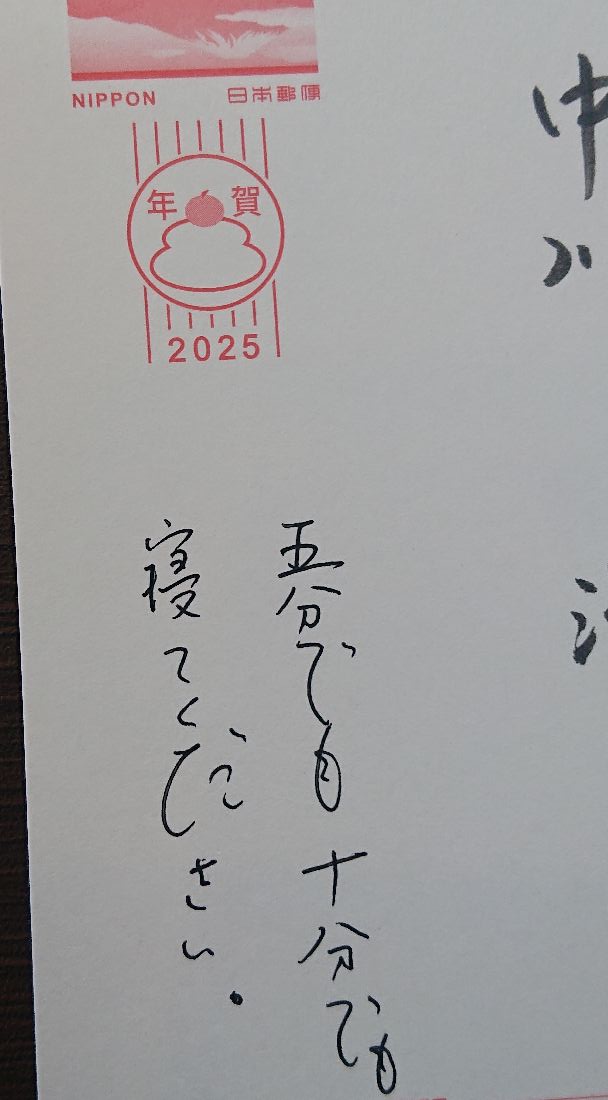 NIPPON 日本郵便
年賀
2025
五分でも十分でも
寝てください。
中川